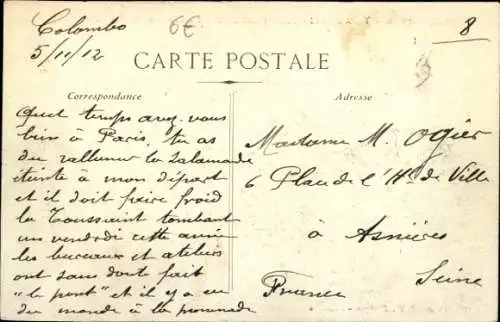 Colombo
5/11/12
6€
8
CARTE POSTALE
Correspondance
Adresse
Quel temps avez-vous
bien à Paris, tu as
du rallumer la Salamandre
éteinte à mon départ
et il doit faire froid
la Toussaint tombant
un vendredi cette année
les bureaux et ateliers
ont sans doute fait
"le pont" et il y a eu
du monde à la promenade
Madame M. Ogier
6 Place de l'Hel de Ville
à Asnières
Seine
France